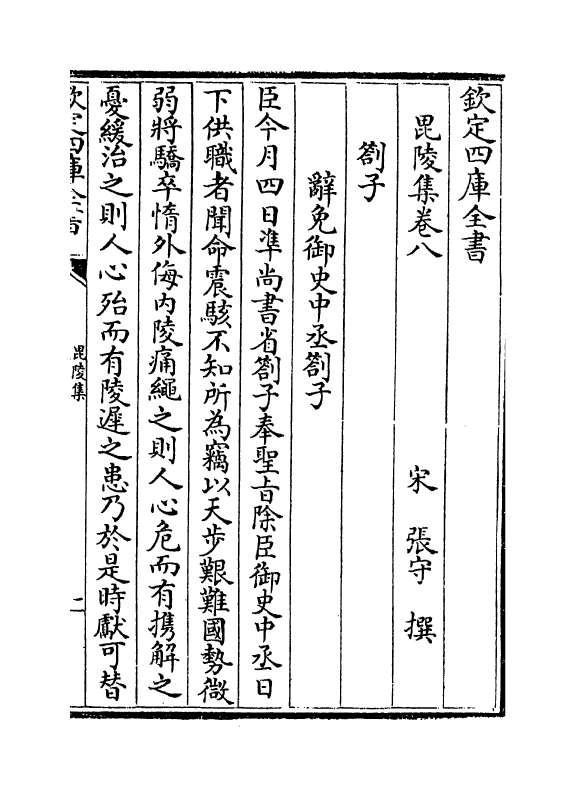 欽定四庫全書
毘陵集卷八
宋 張守 撰
劄子
辭免御史中丞劄子
臣今月四日凖尚書省劄子奉聖旨除臣御史中丞日
下供職者聞命震駭不知所為竊以天步艱難國勢微
弱將驕卒惰外侮内陵痛繩之則人心危而有攜解之
憂緩治之則人心殆而有陵遲之患乃於是時獻可替
欽定四庫全書
毘陵集